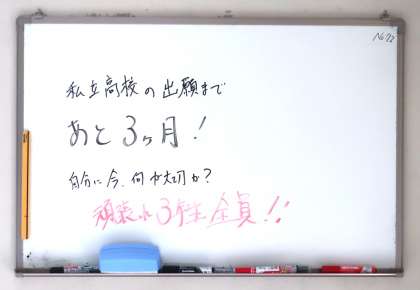 No.72
私立高校の出願まで
あと3ヶ月!
自分に今、何が大切か?
頑張れ3年生全員!!